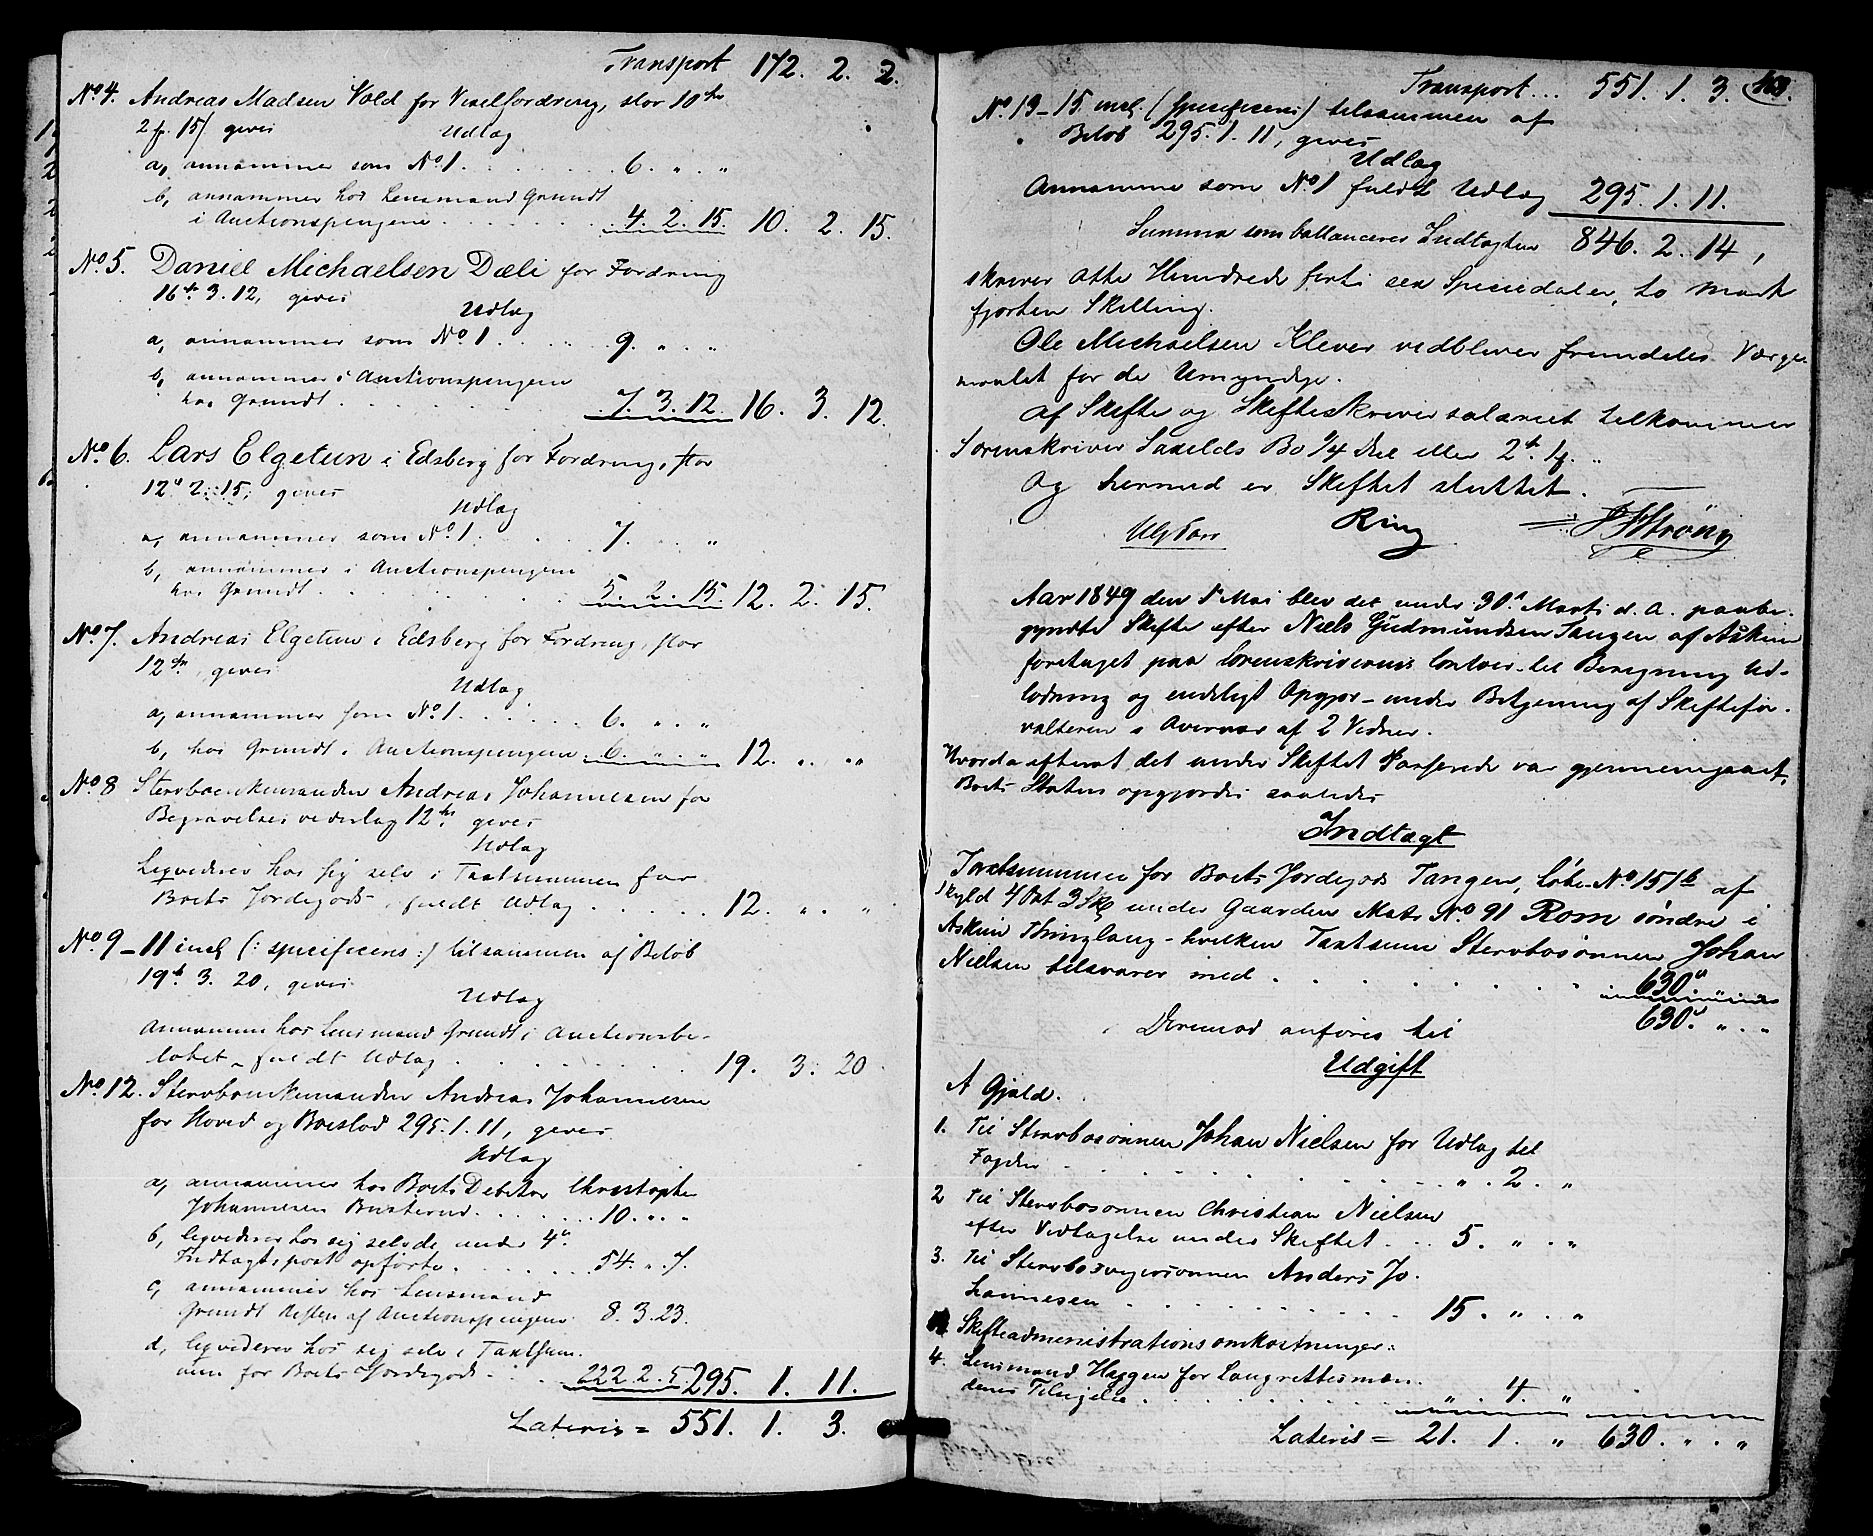 Transport 172. 2. 2.
No 4. Andreas Madsen Vold for Vexelfordring, stor 10
2 15 gives
Udlæg
a, annammer som No 1. 6. " "
b, annammer hos Lensmand Grundt
i Auctionspengene 4. 2. 15. 10. 2. 15.
No 5. Daniel Michaelsen Dæli for Fordring
16. 3. 12, gives
Udlæg
a, annammer som No 1. 9. " "
b, annammer i Auctionspengene
hos Grundt. 7. 3. 12. 16. 3. 12.
No 6. Lars Elgetun i Edsberg for Fordring, stor
12. 2. 15, gives
Udlæg
a, annammer som No 1. 7. "
b, annammer i Auctionspengene
hos Grundt. 5. 2. 15. 12. 2. 15.
No 7. Andreas Elgetun i Edsberg for Fordring, stor
12, gives
Udlæg
a, annammer som No 1. 6. " "
b, hos Grundt i Auctionspengene 6. " " 12. " "
No 8 Stervboenkemanden Andreas Johannesen for
Begravelsesvederlag 12 gives
Udlæg
Liqviderer hos sig selv i Taxtsummen for
Boets Jordegods, fuldt Udlæg. 12. " "
No 9–11 incl (: specificeres :) tilsammen af Beløb
19. 3. 20, gives
Udlæg
Annamme hos Lensmand Grundt i Auctionsbe-
løbet – fuldt Udlæg. 19. 3. 20
No 12. Stervboenkemanden Andreas Johannesen
for Hoved og Boeslod 295. 1. 11, gives
Udlæg
a, annammer hos Boets Debitor Christopher
Johannesen Busterud. 10. " "
b, liqviderer hos sig selv de under 4
Indtægtspost opførte. 54. " 7.
c, annammer hos Lensmand
Grundt Resten af Auctionspengene 8. 3. 23.
d, liqviderer hos sig selv i Taxtsum-
men for Boets Jordegods. 222. 2. 5. 295. 1. 11.
Lateris = 551. 1. 3.
Transport... 551. 1. 3.
No 13–15 incl. (specificeres) tilsammen af
Beløb 295. 1. 11, gives
Udlæg
Annamme som No 1 fuldt Udlæg 295. 1. 11.
Summa som ballancerer Indtægten 846. 2. 14,
skriver otte Hundrede forti sex Speciedaler, to Mark
fjorten Skilling.
Ole Michaelsen Klever vedbliver fremdeles Værge-
maalet for de Umyndige.
Af Skifte og Skifteskriversalariet tilkommer
Sorenskriver Saxilds Bo 1/4 Del eller 2
Og hermed er Skiftet sluttet.
Ring Strøm
Aar 1849 den Mai blev det under 30 Marts d. A. paabe-
gyndte Skifte efter Niels Gudmundsen Tangen af Askim
foretaget paa Sorenskriverens Contoir til Beregning Ud-
lodning og endeligt Opgjør – under Betjening af Skiftefor-
valteren i Overvær af 2 Vidner.
Hvorda efterat det under Skiftet Passerede var gjennemgaaet,
Boets Status opgjordes saaledes
Indtægt
Taxtsummen for Boets Jordegods Tangen, Løbe-No 157b af
Skyld 4 Ort 3 Sk under Gaarden Matr No 91 Rom søndre i
Askim Thinglaug – hvilken Taxtsum Stervbosønnen Johan
Nielsen tilsvarer med. 630
630. " "
Derimod anføres til
Udgift
A Gjæld.
1. Til Stervbosønnen Johan Nielsen for Udlæg til
Fogden " 2. "
2 Til Stervbosønnen Christian Nielsen
efter Vedtagelse under Skiftet 5. " "
3. Til Stervbosvigersønnen Anders Jo-
hannesen 15. " "
Skifteadministrationsomkostninger:
4. Lensmand Heggen for Laugrettesmæn-
denes Tilsigelse. " 4. "
Lateris = 21. 1. " 630. " "